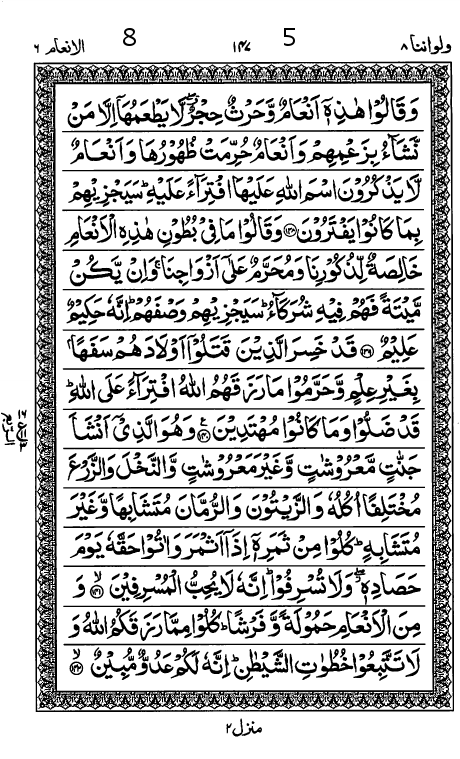 ولواننا ٨ 5 ١٤٧ 8 الانعام ٦
وَقَالُوْا هٰذِهٖۤ اَنْعَامٌ وَّحَرْثٌ حِجْرٌ ۖ لَّا يَطْعَمُهَاۤ اِلَّا مَنْ
نَّشَآءُ بِزَعْمِهِمْ وَاَنْعَامٌ حُرِّمَتْ ظُهُوْرُهَا وَاَنْعَامٌ
لَّا يَذْكُرُوْنَ اسْمَ اللّٰهِ عَلَيْهَا افْتِرَآءً عَلَيْهِ ؕ سَيَجْزِيْهِمْ
بِمَا كَانُوْا يَفْتَرُوْنَ ﴿۱۳۸﴾ وَقَالُوْا مَا فِيْ بُطُوْنِ هٰذِهِ الْاَنْعَامِ
خَالِصَةٌ لِّذُكُوْرِنَا وَمُحَرَّمٌ عَلٰۤى اَزْوَاجِنَا ۚ وَاِنْ يَّكُنْ
مَّيْتَةً فَهُمْ فِيْهِ شُرَكَآءُ ؕ سَيَجْزِيْهِمْ وَصْفَهُمْ ؕ اِنَّهٗ حَكِيْمٌ
عَلِيْمٌ ﴿۱۳۹﴾ قَدْ خَسِرَ الَّذِيْنَ قَتَلُوْۤا اَوْلَادَهُمْ سَفَهًاۢ
بِغَيْرِ عِلْمٍ وَّحَرَّمُوْا مَا رَزَقَهُمُ اللّٰهُ افْتِرَآءً عَلَى اللّٰهِ ؕ
قَدْ ضَلُّوْا وَمَا كَانُوْا مُهْتَدِيْنَ ﴿۱۴۰﴾ وَهُوَ الَّذِيْۤ اَنْشَاَ
جَنّٰتٍ مَّعْرُوْشٰتٍ وَّغَيْرَ مَعْرُوْشٰتٍ وَّالنَّخْلَ وَالزَّرْعَ
مُخْتَلِفًا اُكُلُهٗ وَالزَّيْتُوْنَ وَالرُّمَّانَ مُتَشَابِهًا وَّغَيْرَ
مُتَشَابِهٍ ؕ كُلُوْا مِنْ ثَمَرِهٖۤ اِذَاۤ اَثْمَرَ وَاٰتُوْا حَقَّهٗ يَوْمَ
حَصَادِهٖ ۖ وَلَا تُسْرِفُوْا ؕ اِنَّهٗ لَا يُحِبُّ الْمُسْرِفِيْنَ ﴿۱۴۱﴾ وَ
مِنَ الْاَنْعَامِ حَمُوْلَةً وَّفَرْشًا ؕ كُلُوْا مِمَّا رَزَقَكُمُ اللّٰهُ وَ
لَا تَتَّبِعُوْا خُطُوٰتِ الشَّيْطٰنِ ؕ اِنَّهٗ لَكُمْ عَدُوٌّ مُّبِيْنٌ ﴿۱۴۲﴾
منزل ٢